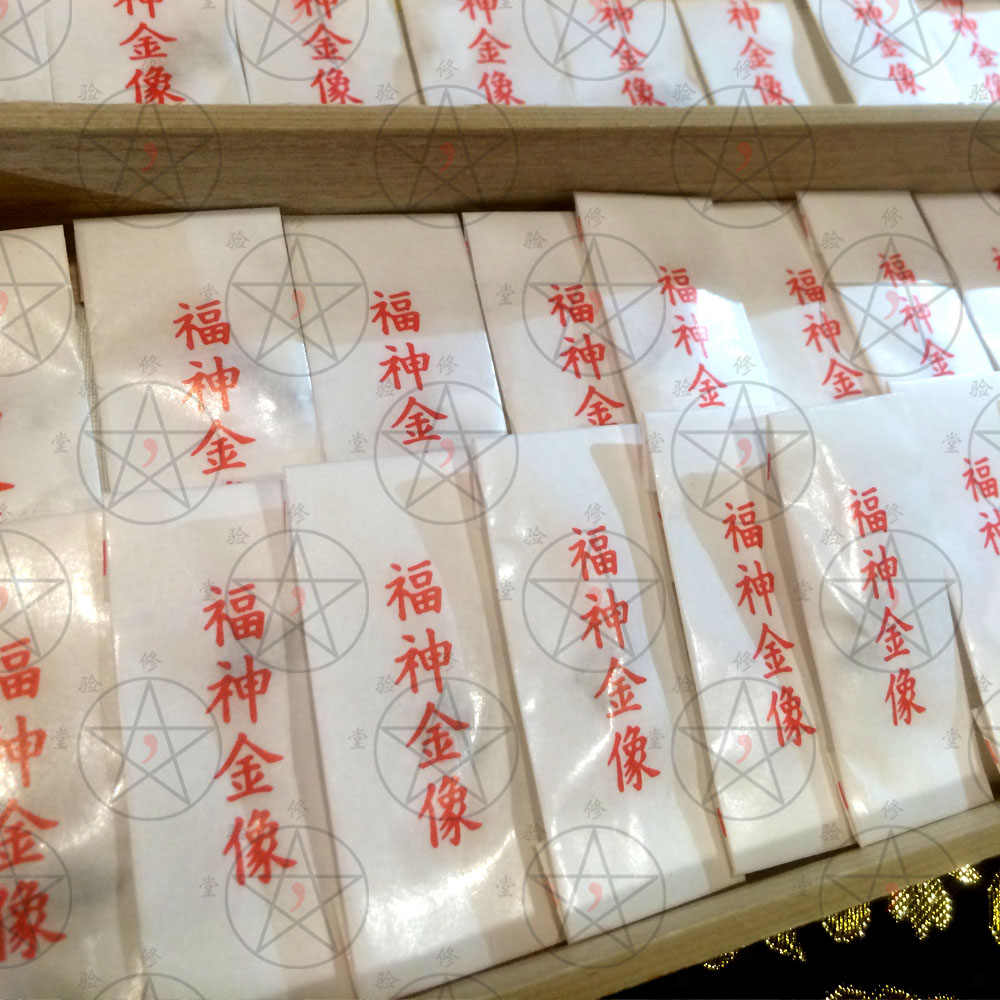 神金像
神金像
神金像
神金像
神金像
神金像
神金像
福神金
福神金
福神金
福神金
福神金
福神金
福神
福神金像
福神金像
福神金像
福神金像
福神金像
福神金像
修验堂